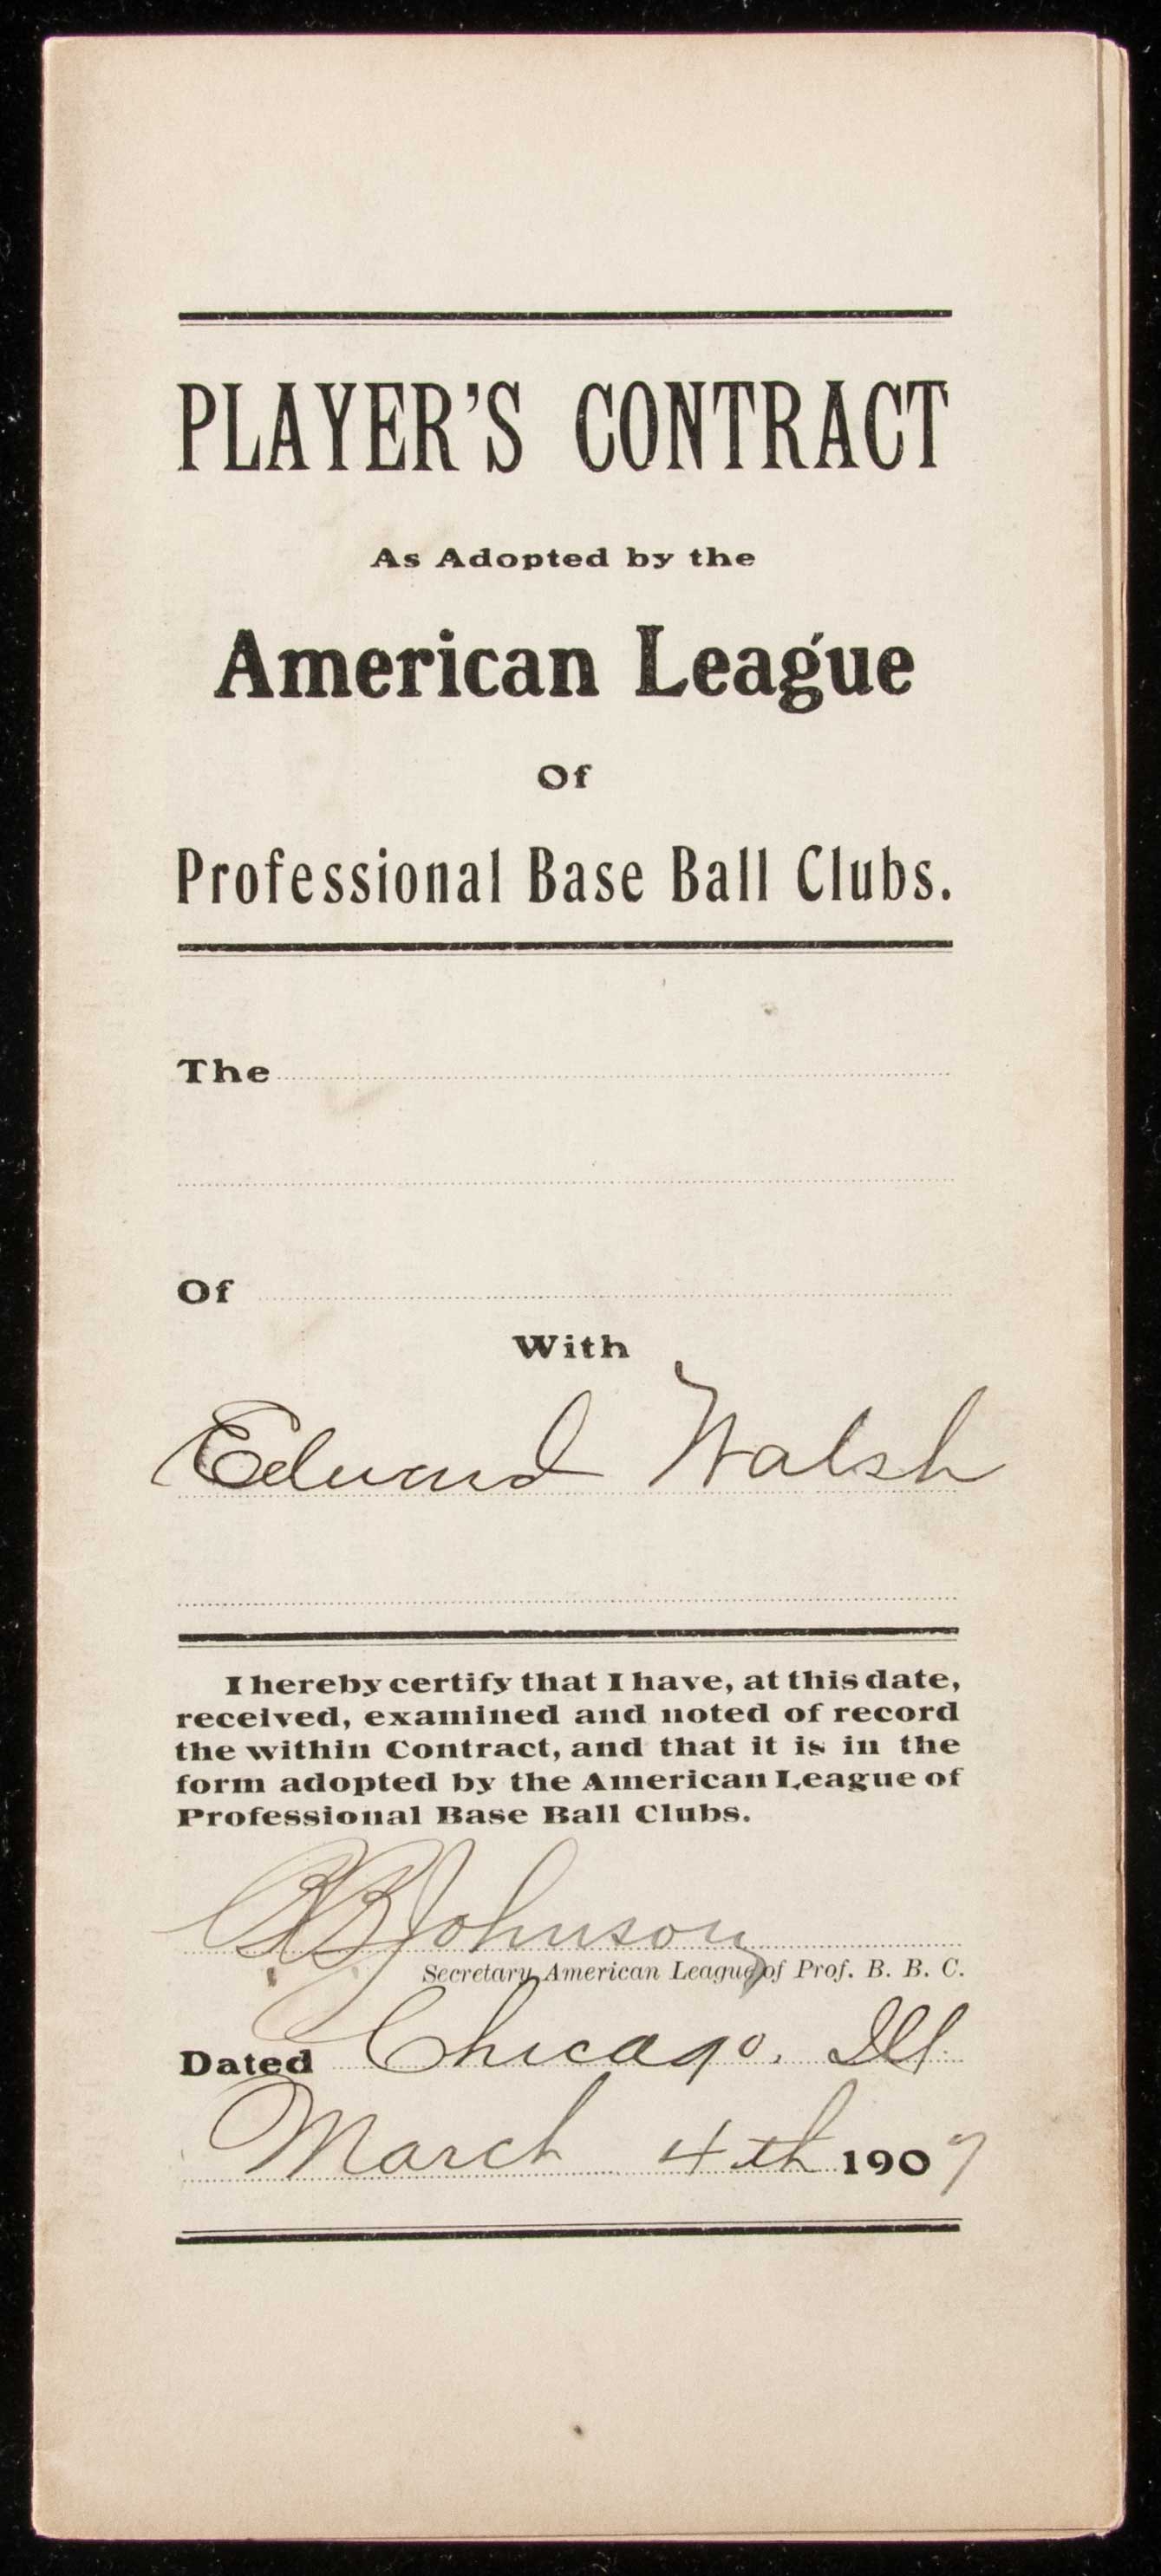 PLAYER'S CONTRACT
As Adopted by the
American League
Of
Professional Base Ball Clubs.
The
Of
With
Edward Walsh
I hereby certify that I have, at this date,
received, examined and noted of record
the within Contract, and that it is in the
form adopted by the American League of
Professional Base Ball Clubs.
B B Johnson
Secretary American League of Prof. B. B. C.
Dated Chicago, Ill.
March 4th 1907